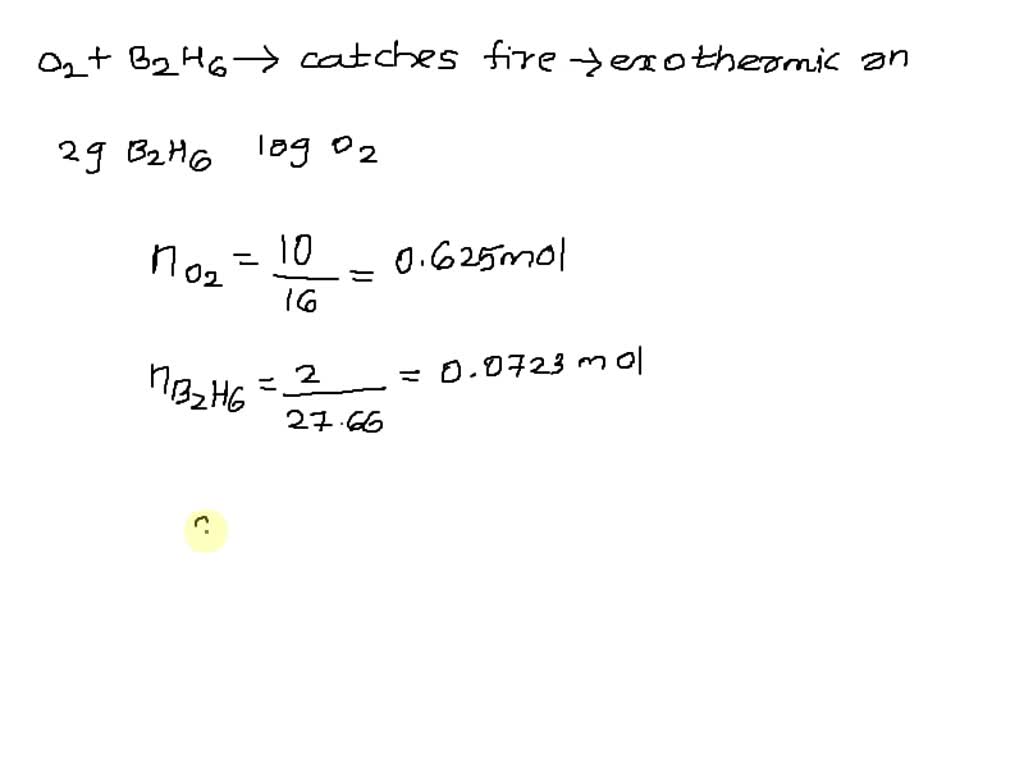 O2 + B2H6 → catches fire → exothermic an
2g B2H6 10g O2
nO2 = 10/16 = 0.625mol
nB2H6 = 2/27.66 = 0.0723 mol